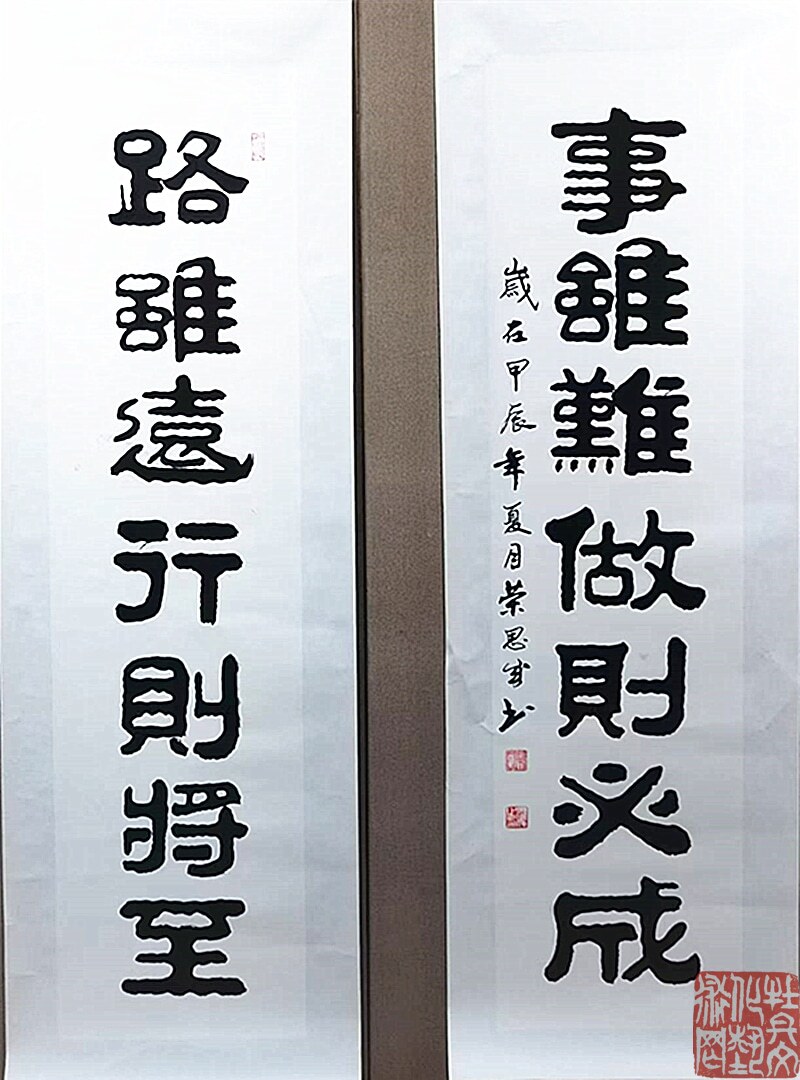 路雖遠行則將至
事雖難做則必成
歲在甲辰年夏月荣思书